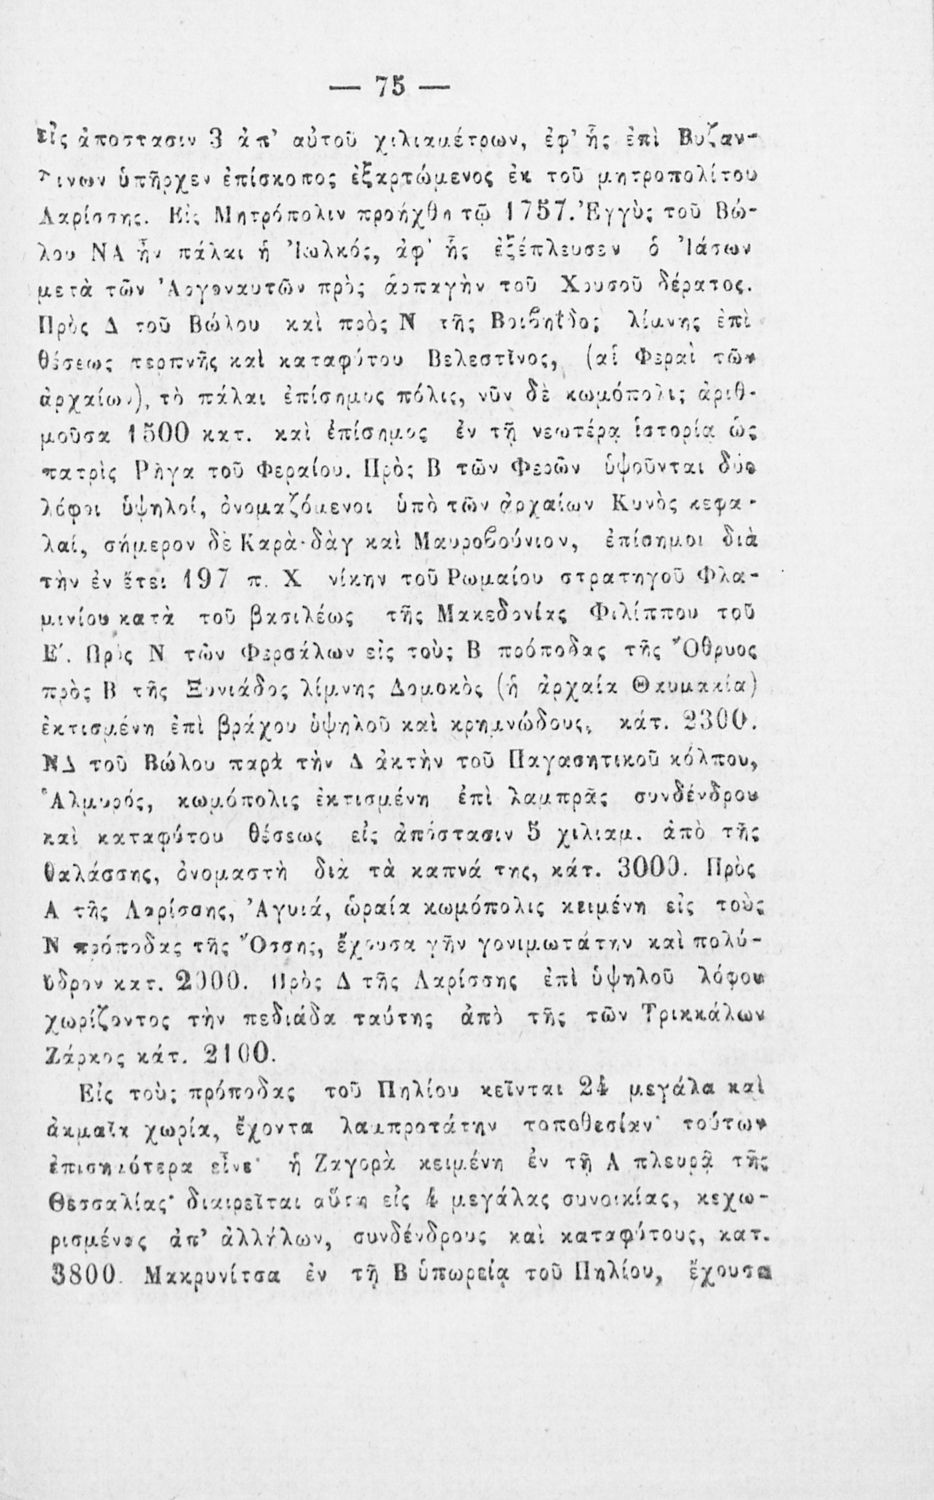 — 75 —
εἰς ἀπόστασιν 3 ἀπ’ αὐτοῦ χιλιαμέτρων, ἐφ’ ἧς ἐπὶ Βυζαν-
τινων ὑπῆρχεν ἐπίσκοπος ἐξαρτώμενος ἐκ τοῦ μητροπολίτου
Λαρίσσης. Εἰς Μητρόπολιν προήχθη τῷ 1757. Ἐγγὺς τοῦ Βώ-
λου ΝΑ ἦν πάλαι ἡ Ἰωλκός, ἀφ’ ἧς ἐξέπλευσεν ὁ Ἰάσων
μετὰ τῶν Ἀργοναυτῶν πρὸς ἁρπαγὴν τοῦ Χρυσοῦ δέρατος.
Πρὸς Δ τοῦ Βώλου καὶ πρὸς Ν τῆς Βοιβηΐδος λίμνης ἐπὶ
θέσεως τερπνῆς καὶ καταφύτου Βελεστῖνος, (αἱ Φεραὶ τῶν
ἀρχαίων), τὸ πάλαι ἐπίσημος πόλις, νῦν δὲ κωμόπολις ἀριθ-
μοῦσα 1500 κατ. καὶ ἐπίσημος ἐν τῇ νεωτέρᾳ ἱστορίᾳ ὡς
πατρὶς Ρήγα τοῦ Φεραίου. Πρὸς Β τῶν Φερῶν ὑψοῦνται δύο
λόφοι ὑψηλοί, ὀνομαζόμενοι ὑπὸ τῶν ἀρχαίων Κυνὸς κεφα-
λαί, σήμερον δὲ Καρὰ-δὰγ καὶ Μαυροβούνιον, ἐπίσημοι διὰ
τὴν ἐν ἔτει 197 π. Χ νίκην τοῦ Ρωμαίου στρατηγοῦ Φλα-
μινίου κατὰ τοῦ βασιλέως τῆς Μακεδονίας Φιλίππου τοῦ
Ε΄. Πρὸς Ν τῶν Φαρσάλων εἰς τοὺς Β πρόποδας τῆς Ὄθρυος
πρὸς Β τῆς Ξυνιάδος λίμνης Δομοκὸς (ἡ ἀρχαία Θαυμακία)
ἐκτισμένη ἐπὶ βράχου ὑψηλοῦ καὶ κρημνώδους, κάτ. 2300.
ΝΔ τοῦ Βώλου παρὰ τὴν Δ ἀκτὴν τοῦ Παγασητικοῦ κόλπου,
Ἁλμυρός, κωμόπολις ἐκτισμένη ἐπὶ λαμπρᾶς συνδένδρου
καὶ καταφύτου θέσεως εἰς ἀπόστασιν 5 χιλιαμ. ἀπὸ τῆς
θαλάσσης, ὀνομαστὴ διὰ τὰ καπνά της, κάτ. 3000. Πρὸς
Α τῆς Λαρίσσης, Ἀγυιά, ὡραία κωμόπολις κειμένη εἰς τοὺς
Ν πρόποδας τῆς Ὄσσης, ἔχουσα γῆν γονιμωτάτην καὶ πολύ-
υδρον κατ. 2000. Πρὸς Δ τῆς Λαρίσσης ἐπὶ ὑψηλοῦ λόφου
χωρίζοντος τὴν πεδιάδα ταύτης ἀπὸ τῆς τῶν Τρικκάλων
Ζάρκος κάτ. 2100.
Εἰς τοὺς πρόποδας τοῦ Πηλίου κεῖνται 24 μεγάλα καὶ
ἀκμαῖα χωρία, ἔχοντα λαμπροτάτην τοποθεσίαν· τούτων
ἐπισημότερα εἶνε· ἡ Ζαγορὰ κειμένη ἐν τῇ Α πλευρᾷ τῆς
Θεσσαλίας· διαιρεῖται αὕτη εἰς 4 μεγάλας συνοικίας, κεχω-
ρισμένας ἀπ’ ἀλλήλων, συνδένδρους καὶ καταφύτους, κατ.
3800. Μακρυνίτσα ἐν τῇ Β ὑπωρείᾳ τοῦ Πηλίου, ἔχουσα